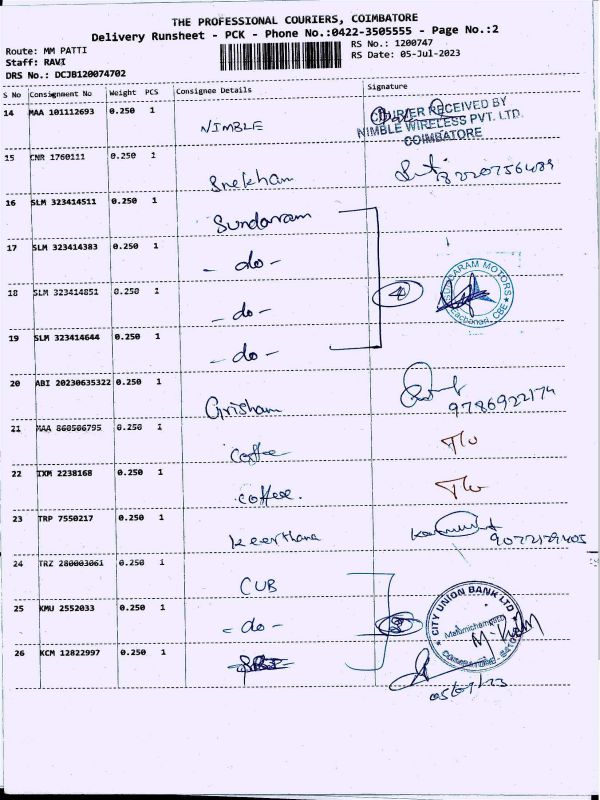 THE PROFESSIONAL COURIERS, COIMBATORE
Delivery Runsheet - PCK - Phone No.:0422-3505555 - Page No.:2
Route: MM PATTI
RS No.: 1200747
Staff: RAVI
RS Date: 05-Jul-2023
DRS No.: DCJB120074702
S No Consignment No Weight PCS Consignee Details Signature
14 MAA 101112693 0.250 1 NIMBLE
COURIER RECEIVED BY
NIMBLE WIRELESS PVT. LTD.
COIMBATORE
15 CNR 1760111 0.250 1 Snekham
16 SLM 323414511 0.250 1 Sundaram
17 SLM 323414383 0.250 1 - do -
18 SLM 323414851 0.250 1 - do - 4
MOTORS
CBE
19 SLM 323414644 0.250 1 - do -
20 ABI 20230635322 0.250 1 Grisham 9786922174
21 MAA 860506795 0.250 1 Coffee
22 IXM 2238168 0.250 1 coffee.
23 TRP 7550217 0.250 1 keerthana
24 TRZ 280003061 0.250 1 CUB
25 KMU 2552033 0.250 1 - do -
CITY UNION BANK LTD
COIMBATORE
26 KCM 12822997 0.250 1